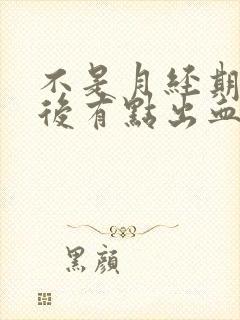 不是月經期
後有點出血
黑顏